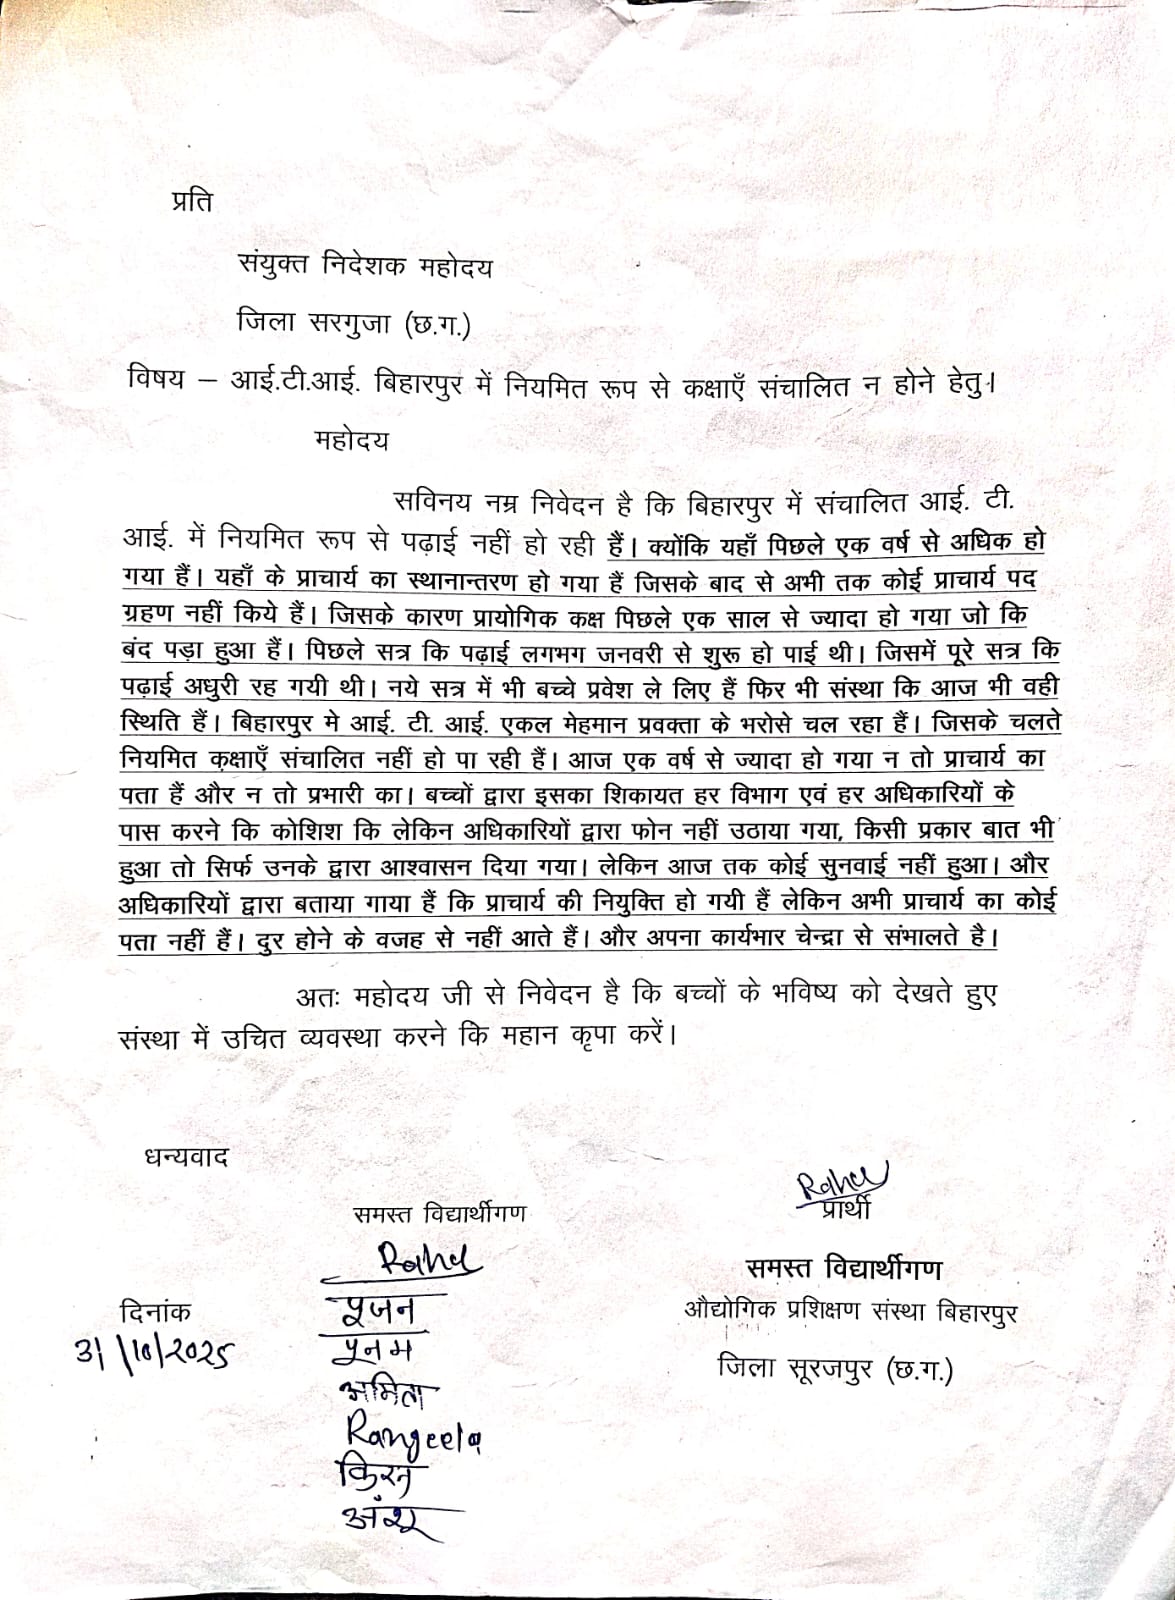 प्रति
संयुक्त निदेशक महोदय
जिला सरगुजा (छ.ग.)
विषय – आई.टी.आई. बिहारपुर में नियमित रूप से कक्षाएँ संचालित न होने हेतु।
महोदय
सविनय नम्र निवेदन है कि बिहारपुर में संचालित आई. टी.
आई. में नियमित रूप से पढ़ाई नहीं हो रही हैं। क्योंकि यहाँ पिछले एक वर्ष से अधिक हो
गया हैं। यहाँ के प्राचार्य का स्थानान्तरण हो गया हैं जिसके बाद से अभी तक कोई प्राचार्य पद
ग्रहण नहीं किये हैं। जिसके कारण प्रायोगिक कक्ष पिछले एक साल से ज्यादा हो गया जो कि
बंद पड़ा हुआ हैं। पिछले सत्र कि पढ़ाई लगभग जनवरी से शुरू हो पाई थी। जिसमें पूरे सत्र कि
पढ़ाई अधुरी रह गयी थी। नये सत्र में भी बच्चे प्रवेश ले लिए हैं फिर भी संस्था कि आज भी वही
स्थिति हैं। बिहारपुर मे आई. टी. आई. एकल मेहमान प्रवक्ता के भरोसे चल रहा हैं। जिसके चलते
नियमित कक्षाएँ संचालित नहीं हो पा रही हैं। आज एक वर्ष से ज्यादा हो गया न तो प्राचार्य का
पता हैं और न तो प्रभारी का। बच्चों द्वारा इसका शिकायत हर विभाग एवं हर अधिकारियों के
पास करने कि कोशिश कि लेकिन अधिकारियों द्वारा फोन नहीं उठाया गया, किसी प्रकार बात भी
हुआ तो सिर्फ उनके द्वारा आश्वासन दिया गया। लेकिन आज तक कोई सुनवाई नहीं हुआ। और
अधिकारियों द्वारा बताया गाया हैं कि प्राचार्य की नियुक्ति हो गयी हैं लेकिन अभी प्राचार्य का कोई
पता नहीं हैं। दुर होने के वजह से नहीं आते हैं। और अपना कार्यभार चेन्द्रा से संभालते है।
अतः महोदय जी से निवेदन है कि बच्चों के भविष्य को देखते हुए
संस्था में उचित व्यवस्था करने कि महान कृपा करें।
धन्यवाद
Rahul
प्रार्थी
समस्त विद्यार्थीगण
औद्योगिक प्रशिक्षण संस्था बिहारपुर
जिला सूरजपुर (छ.ग.)
समस्त विद्यार्थीगण
Rahul
पूजन
पूनम
अमिता
Rangeela
किरन
अंशू
दिनांक
31/10/2025